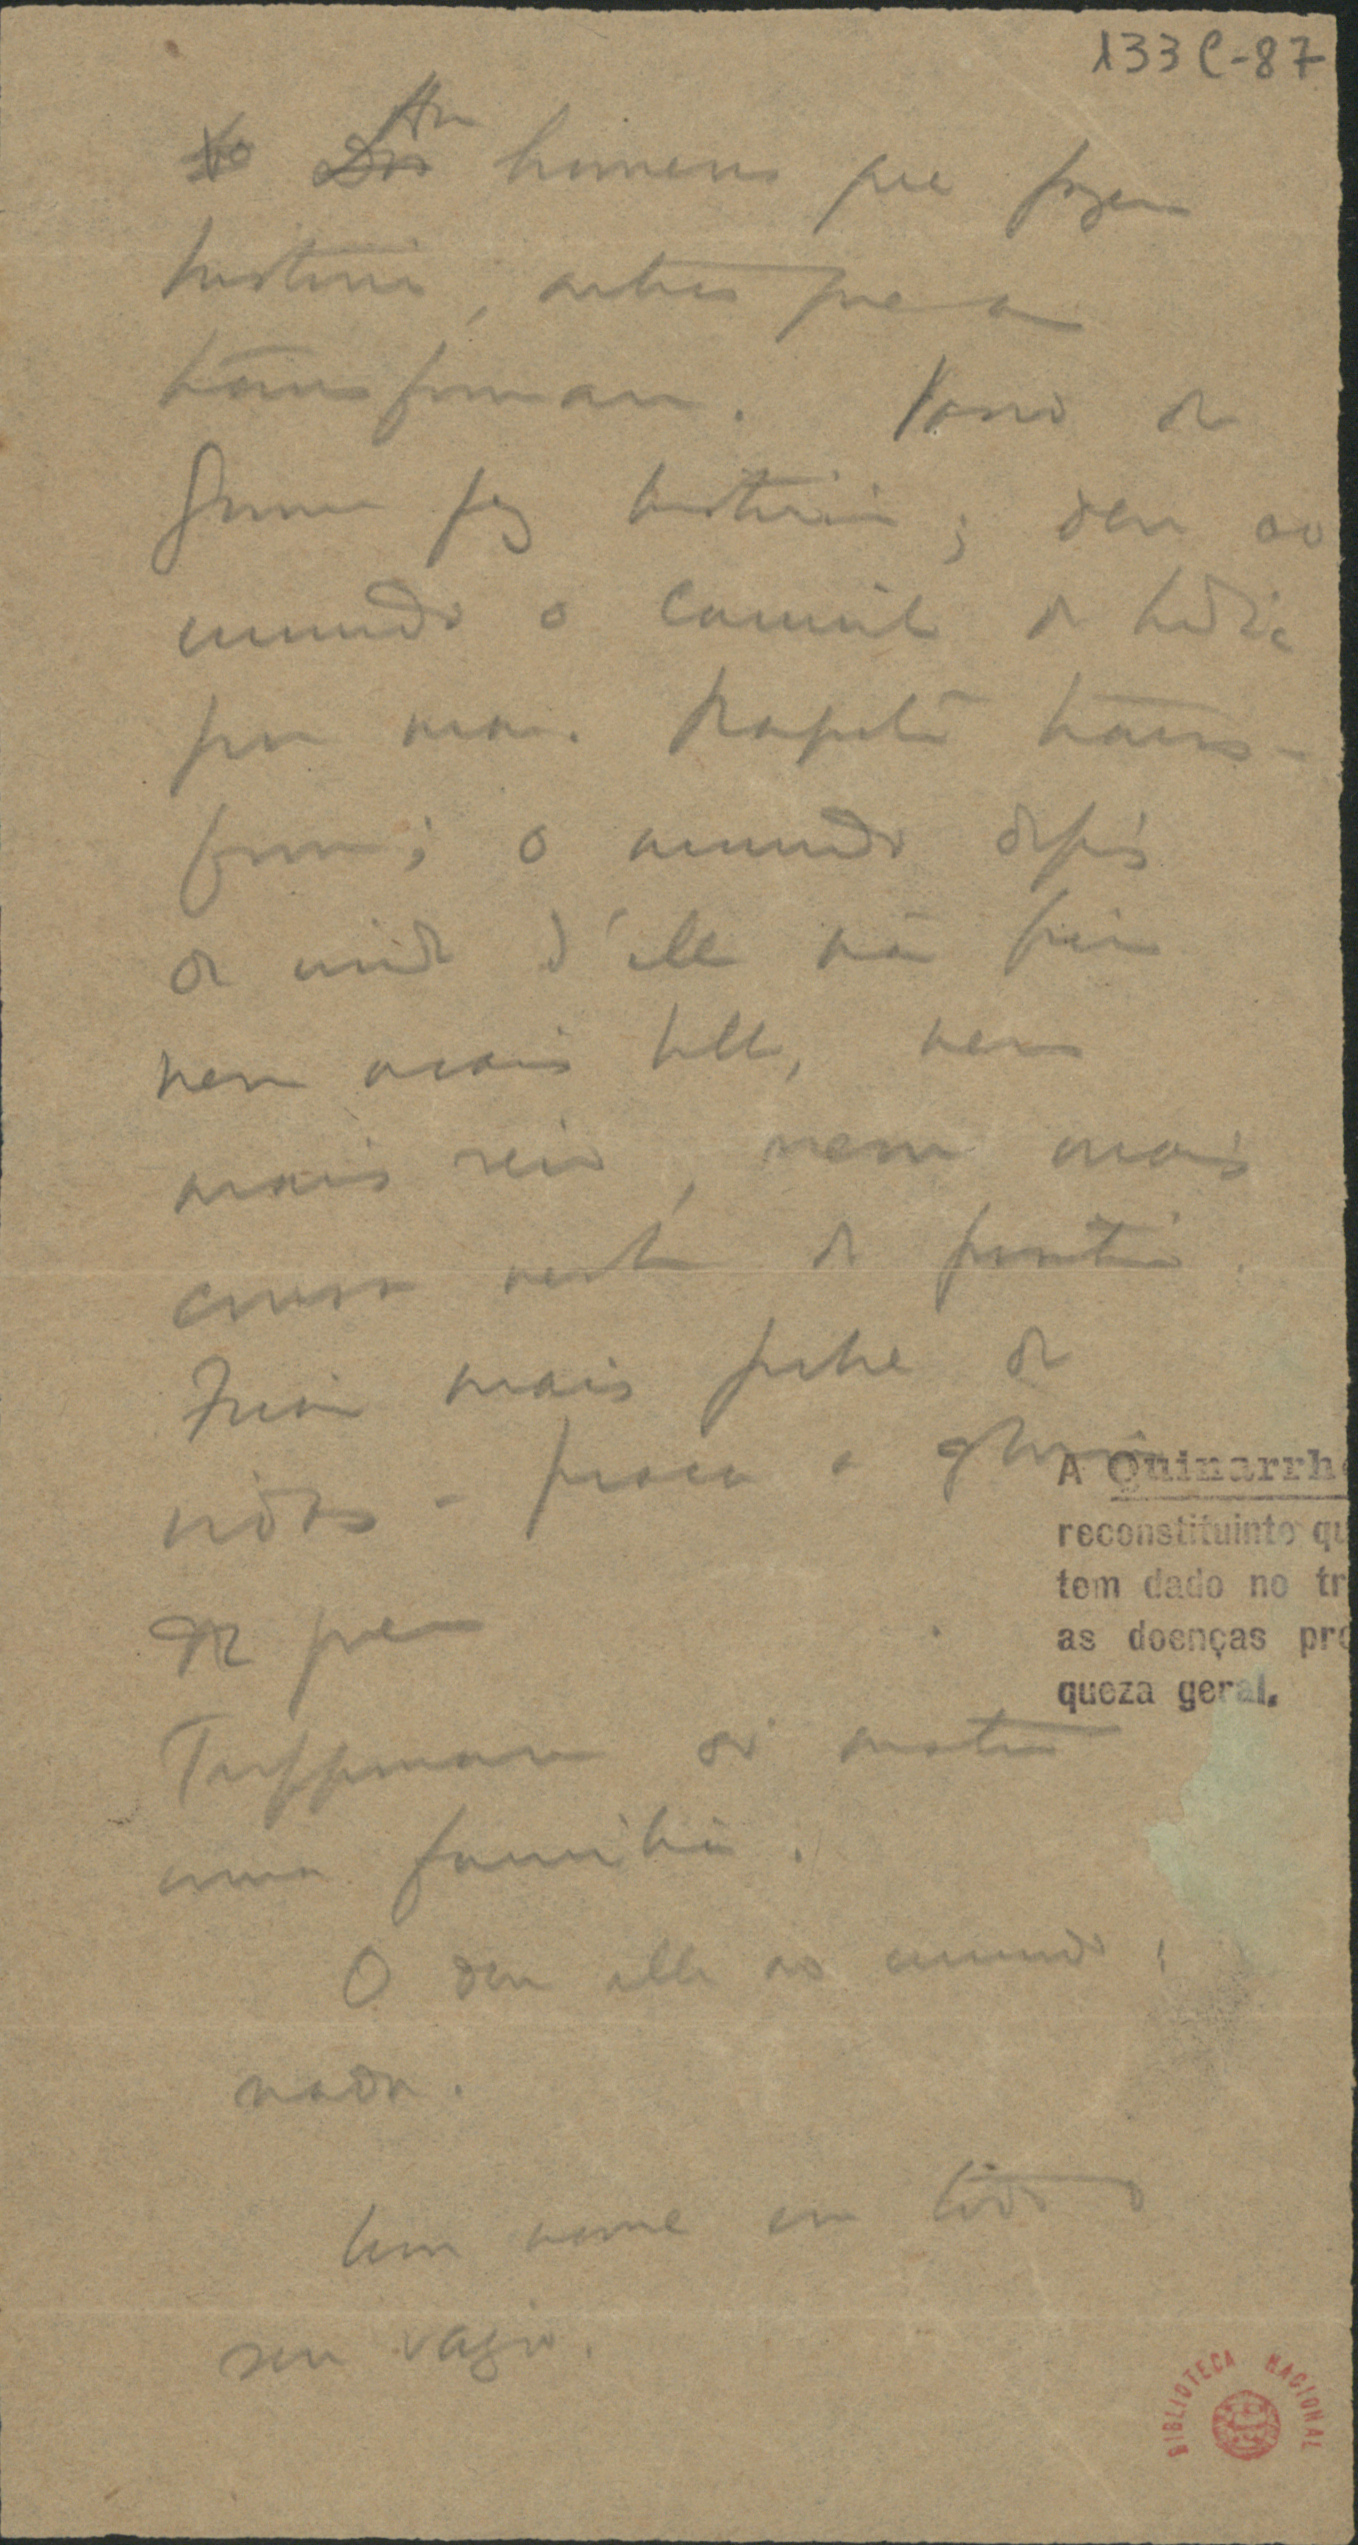 133C-87
Ha
homens que fazem
historia, outros que a
transformam. Vasco da
Gama fez historia; deu ao
mundo o caminho da India
por mar. Napoleão trans-
forma; o mundo depois
da vida d'elle não ficou
nem mais bello, nem
mais rico, nem mais
.
Ficou mais pobre de
vidas –
de quem
Troppmann só matou
uma familia.
O deu elle ao mundo:
nada.
Um nome em todo o
seu vazio.
A Quinarrh
reconstituinte qu
tem dado no tr
as doenças pro
queza geral.
BIBLIOTECA NACIONAL